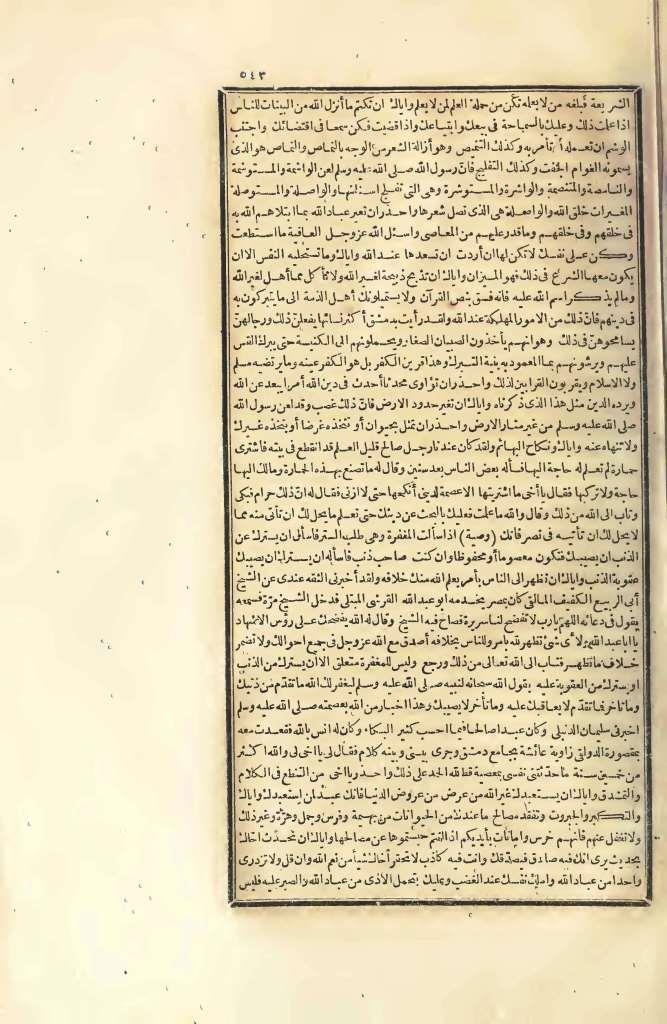 ٥٤٣
الشريعة فبلغه من لا يعلمه تكن من حملة العلم لمن لا يعلم واياك ان تكتم ما أنزل الله من البينات للناس
اذا علمت ذلك وعليك بالسماحة فى بيعك وابتياعك واذا قضيت فكن سمحا فى اقتضائك واجتنب
الوشم ان تعمله أو تأمر به وكذلك التنميص وهو أزالة الشعر من الوجه بالنماص والنماص هو الذى
يسمونه العوام الجفت وكذلك التفليج فان رسول الله صلى الله عليه وسلم لعن الواشمة والمستوشمة
والنامصة والمتنمصة والواشرة والمستوشرة وهى التى تفلج اسنانها والواصلة والمستوصلة
المغيرات خلق الله والواصلة هى الذى تصل شعرها واحذر ان تعير عباد الله بما ابتلاهم الله به
فى خلقهم وفى خلقهم وما قدر عليهم من المعاصى واسئل الله عز وجل العافية ما استطعت
وكن على نفسك لا تكن لها ان أردت ان تسعدها عند الله واياك وما تستحليه النفس الا ان
يكون معها الشرع فى ذلك فهو الميزان واياك ان تذبح ذبيحة لغير الله ولا تأكل مما أهل لغير الله
وما لم يذكر اسم الله عليه فانه فسق بنص القرآن ولا يستميلونك أهل الذمة الى ما يتبركون به
فى دينهم فان ذلك من الامور المهلكة عند الله ولقد رأيت بدمشق أكثر نسائها يفعلن ذلك ورجالهن
يسامحوهن فى ذلك وهو انهم يأخذون الصبيان الصغار ويحملونهم الى الكنيسة حتى يبرك القس
عليهم ويرشونهم بما المعمودية بنية التبرك وهذا قرين الكفر بل هو الكفر عينه وما يرتضيه مسلم
ولا الاسلام ويقربون القرابين لذلك واحذر ان تؤاوى محدثا أحدث فى دين الله أمرا يبعد عن الله
ويرده الدين مثل هذا الذى ذكرناه واياك ان تغير حدود الارض فان ذلك غصب وقد لعن رسول الله
صلى الله عليه وسلم من غير منار الارض واحذر ان تمثل بحيوان أو تتخذه غرضا أو يتخذه غيرك
ولا تنهاه عنه واياك ونكاح البهائم ولقد كان عندنا رجل صالح قليل العلم قد انقطع فى بيته فاشترى
حمارة لم تعلم له حاجة اليها فسأله بعض الناس بعد سنين وقال له ما تصنع بهذه الحمارة ومالك اليها
حاجة ولا تركبها فقال يا أخى ما اشتريتها الا عصمة لدينى أنكحها حتى لا أزنى فقال له ان ذلك حرام فبكى
وتاب الى الله من ذلك وقال والله ما علمت فعليك بالبحث عن دينك حتى تعلم ما يحل لك ان تأتى منه مما
لا يحل لك ان تأتيه فى تصرفاتك (وصية) اذا سألت المغفرة وهى طلب الستر فاسأل ان يسترك عن
الذنب ان يصيبك فتكون معصوما أو محفوظا وان كنت صاحب ذنب فاسأله ان يسترك ان يصيبك
عقوبة الذنب واياك ان تظهر الى الناس بأمر يعلم الله منك خلافه ولقد أخبرنى الثقة عندى عن الشيخ
أبى الربيع الكفيف المالقى كان بمصر يخدمه ابو عبد الله القرشى المبتلى فدخل الشيخ مرة فسمعه
يقول فى دعائه اللهم يا رب لا تفضح لنا سريرة فصاح فيه الشيخ وقال له الله يفضحك على رؤس الاشهاد
يا ابا عبد الله ولأى شئ تظهر لله بأمر وللناس بخلافه أصدق مع الله عز وجل فى جميع احوالك ولا تضمر
خلاف ما تظهر فتاب الى الله تعالى من ذلك ورجع وليس للمغفرة متعلق الا ان يسترك من الذنب
او يسترك من العقوبة عليه يقول الله سبحانه لنبيه صلى الله عليه وسلم ليغفر لك الله ما تقدم من ذنبك
وما تأخر فما تقدم لا يعاقبك عليه وما تأخر لا يصيبك وهذا اخبار من الله بعصمته صلى الله عليه وسلم
اخبرنى سليمان الدنبلى وكان عبدا صالحا فيما احسب كثير البكاء وكان له انس بالله فقعدت معه
بمقصورة الدولتى زاوية عائشة بجامع دمشق وجرى بينى وبينه كلام فقال لى يا اخى لى والله اكثر
من خمسين سنة ما حدثتنى نفسى بمعصية قط لله الحمد على ذلك واحذر يا اخى من التنطع فى الكلام
والتشدق واياك ان يستعبدك غير الله من عرض من عروض الدنيا فانك عبد لمن استعبدك واياك
والتكبر والجبروت وتفقد مصالح ما عندك من الحيوانات من بهيمة وفرس وجمل وهرة وغير ذلك
ولا تغفل عنهم فانهم خرس وامانات بأيديكم اذا انتم حبستموها عن مصالحها واياك ان تحدث اخاك
بحديث يرى انك فيه صادق فيصدقك وانت فيه كاذب لا تحقر أخاك شيأ من نعم الله وان قل ولا تزدرى
واحدا من عباد الله واملك نفسك عند الغضب وعليك بتحمل الاذى من عباد الله والصبر عليه فليس